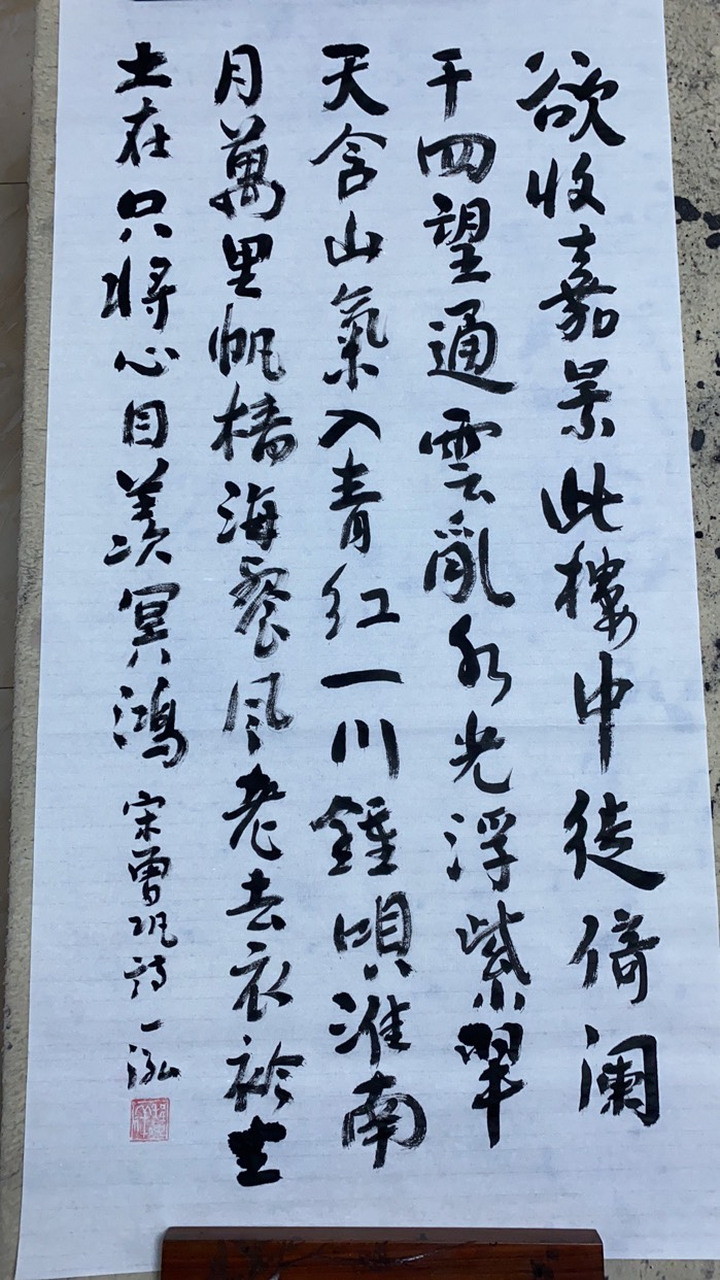 欲收嘉景此樓中徒倚阑
干四望通雲亂水光浮紫翠
天含山氣入青红一川鍾唄淮南
月萬里帆檣海餐风老去衣衿尘
土在只將心目羡冥鴻 宋曾巩詩 一泓